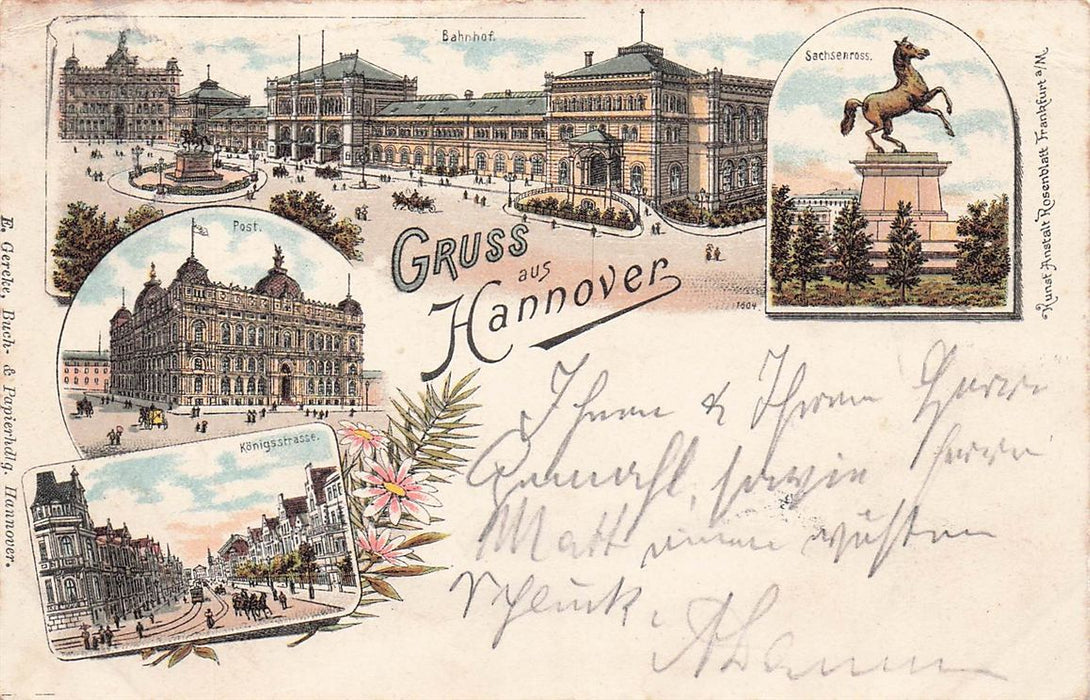 Bahnhof.
Sachsenross.
Post.
GRUSS
aus
Hannover
1604
Königsstrasse.
E. Gercke, Buch- & Papierhdlg. Hannover.
Kunst Anstalt Rosenblatt Frankfurt a/M
Ihnen & Ihrem Herrn
Gemahl, sowie Herrn
Matt einen
Schluck.